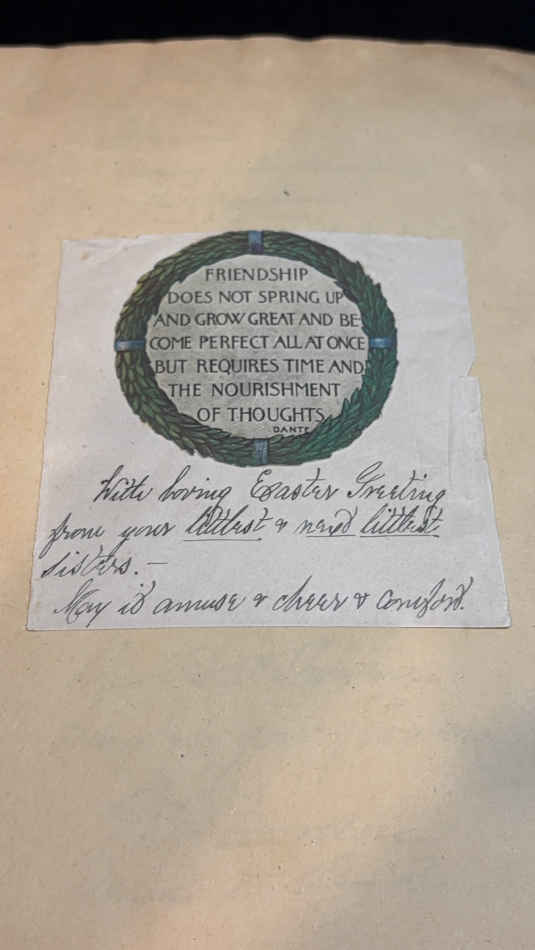 FRIENDSHIP
DOES NOT SPRING UP
AND GROW GREAT AND BE-
COME PERFECT ALL AT ONCE
BUT REQUIRES TIME AND
THE NOURISHMENT
OF THOUGHTS
DANTE
With loving Easter Greeting
from your littlest & next littlest
sisters. —
May it amuse & cheer & comfort.